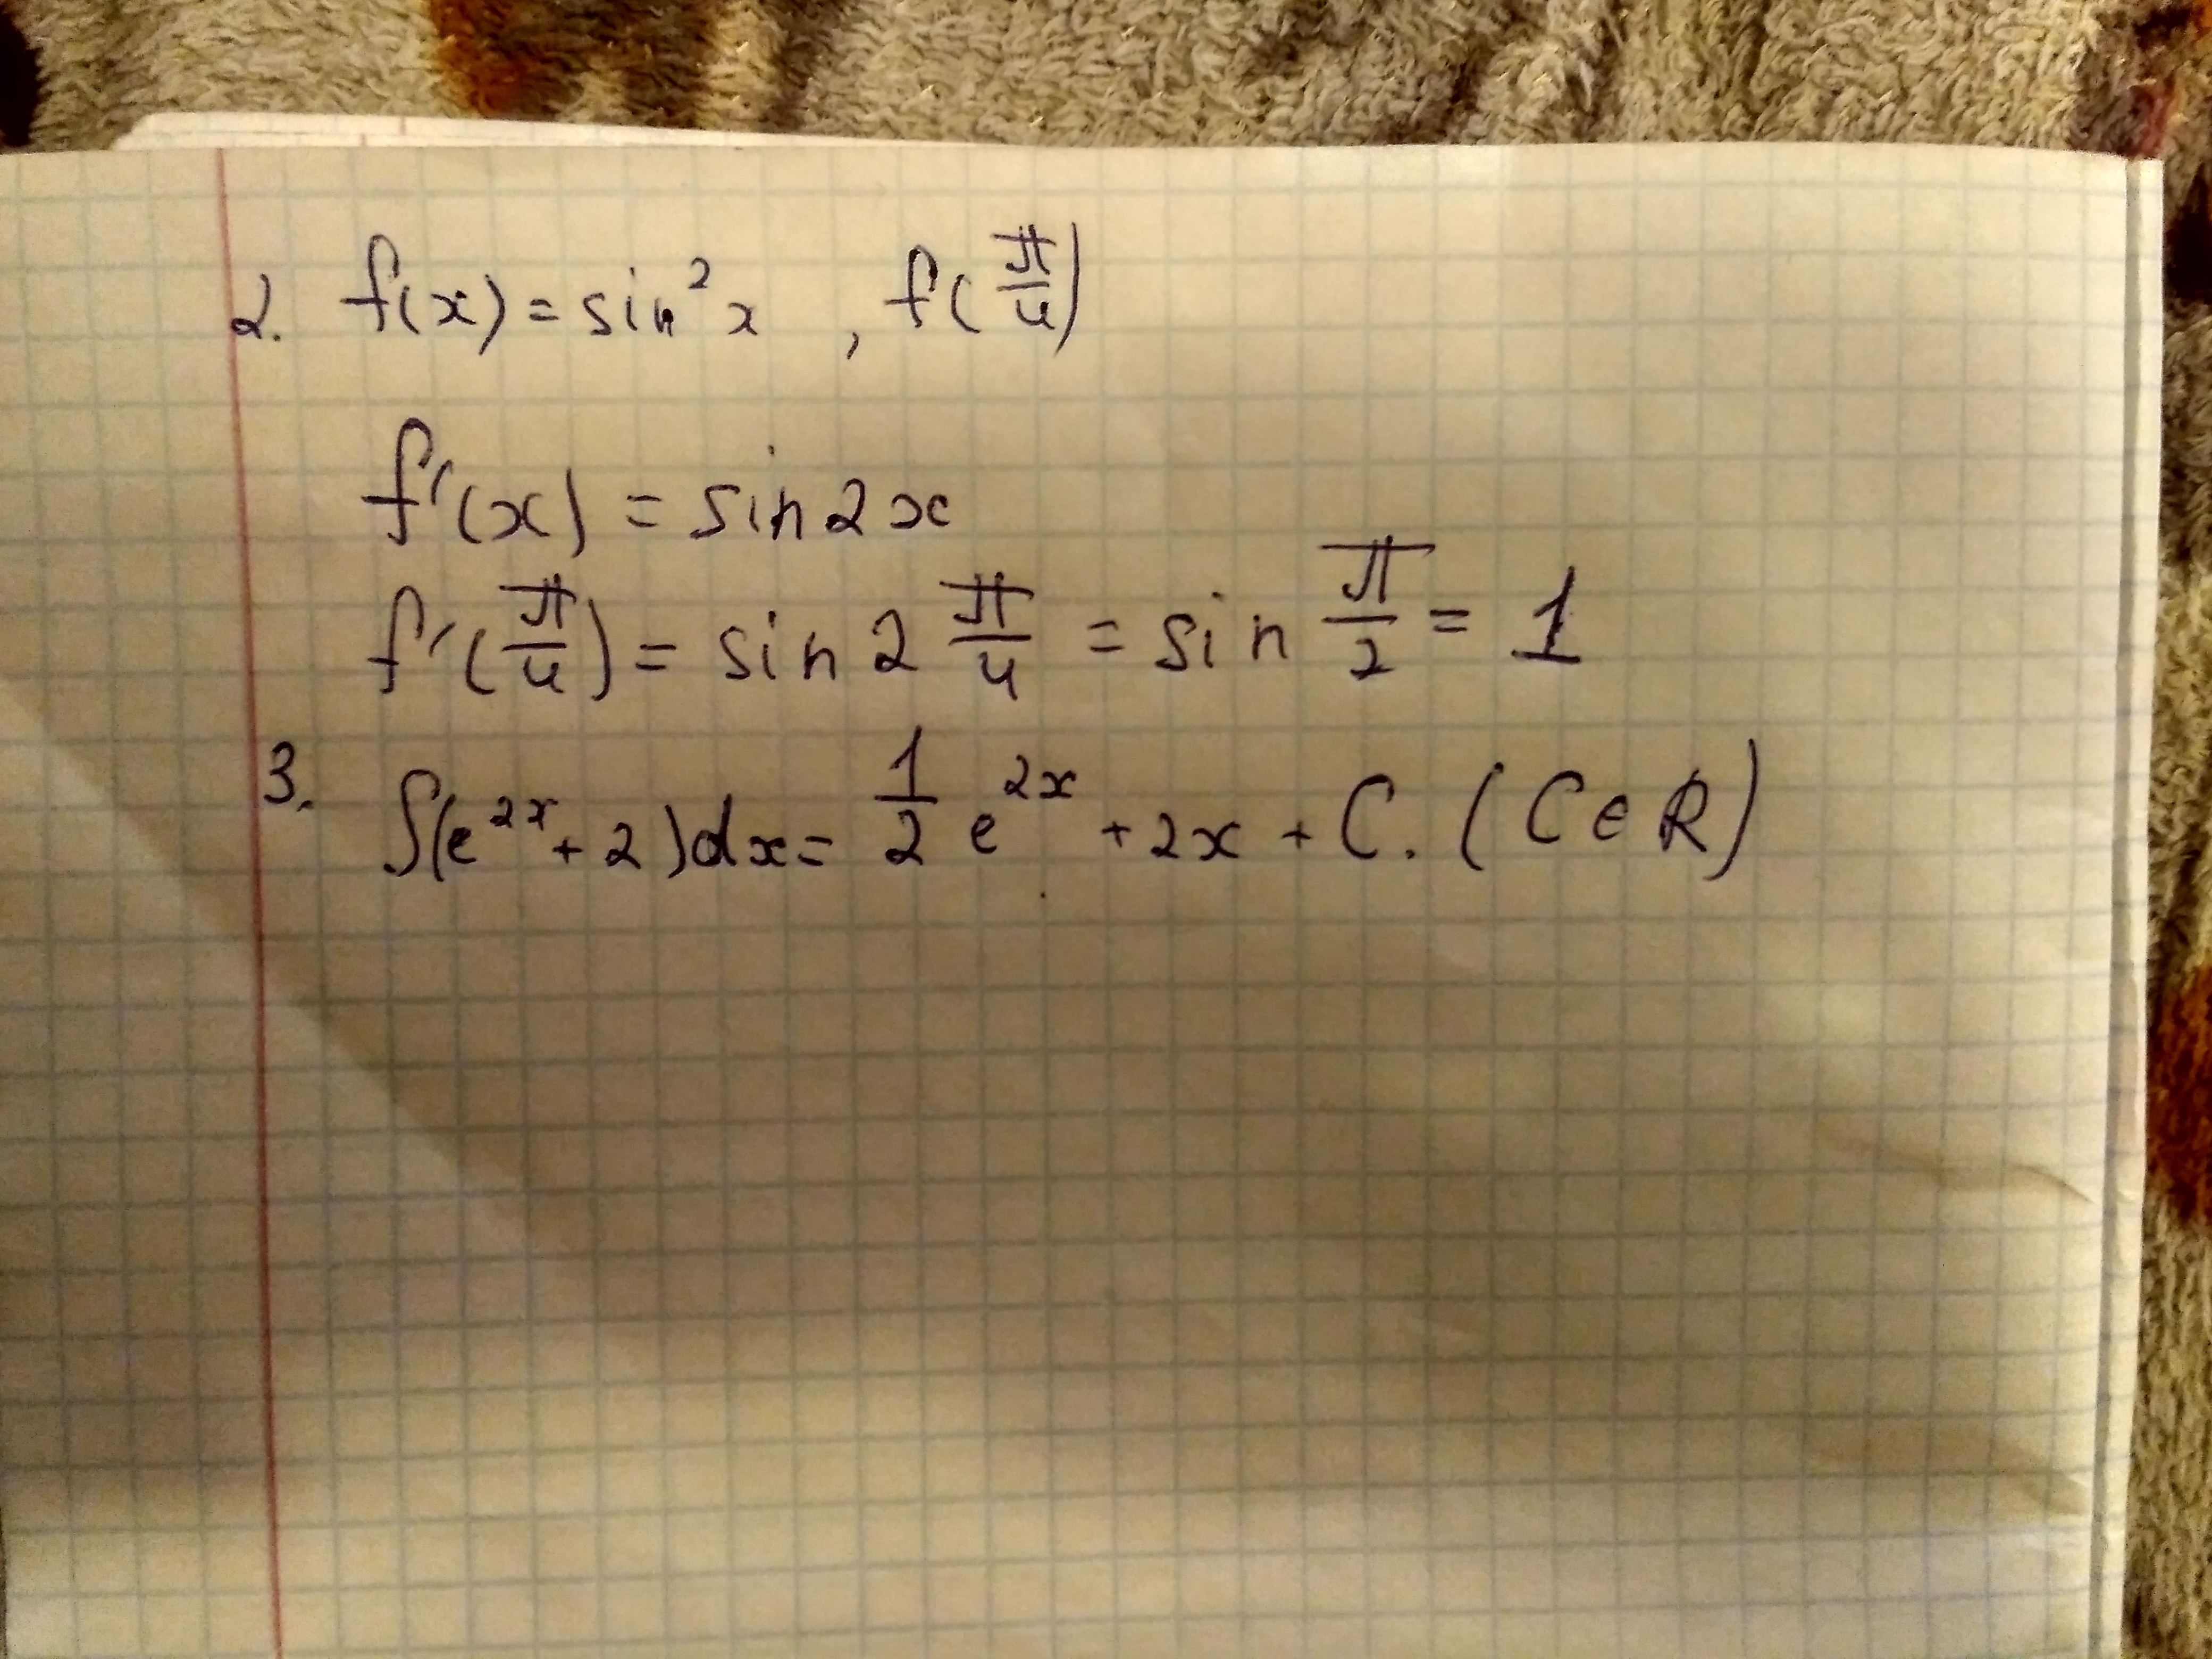 2. f(x) = sin²x , f(π/4)
f'(x) = sin2x
f'(π/4) = sin 2 π/4 = sin π/2 = 1
3. ∫(e^2x + 2)dx = 1/2 e^2x + 2x + C. (C ∈ R)